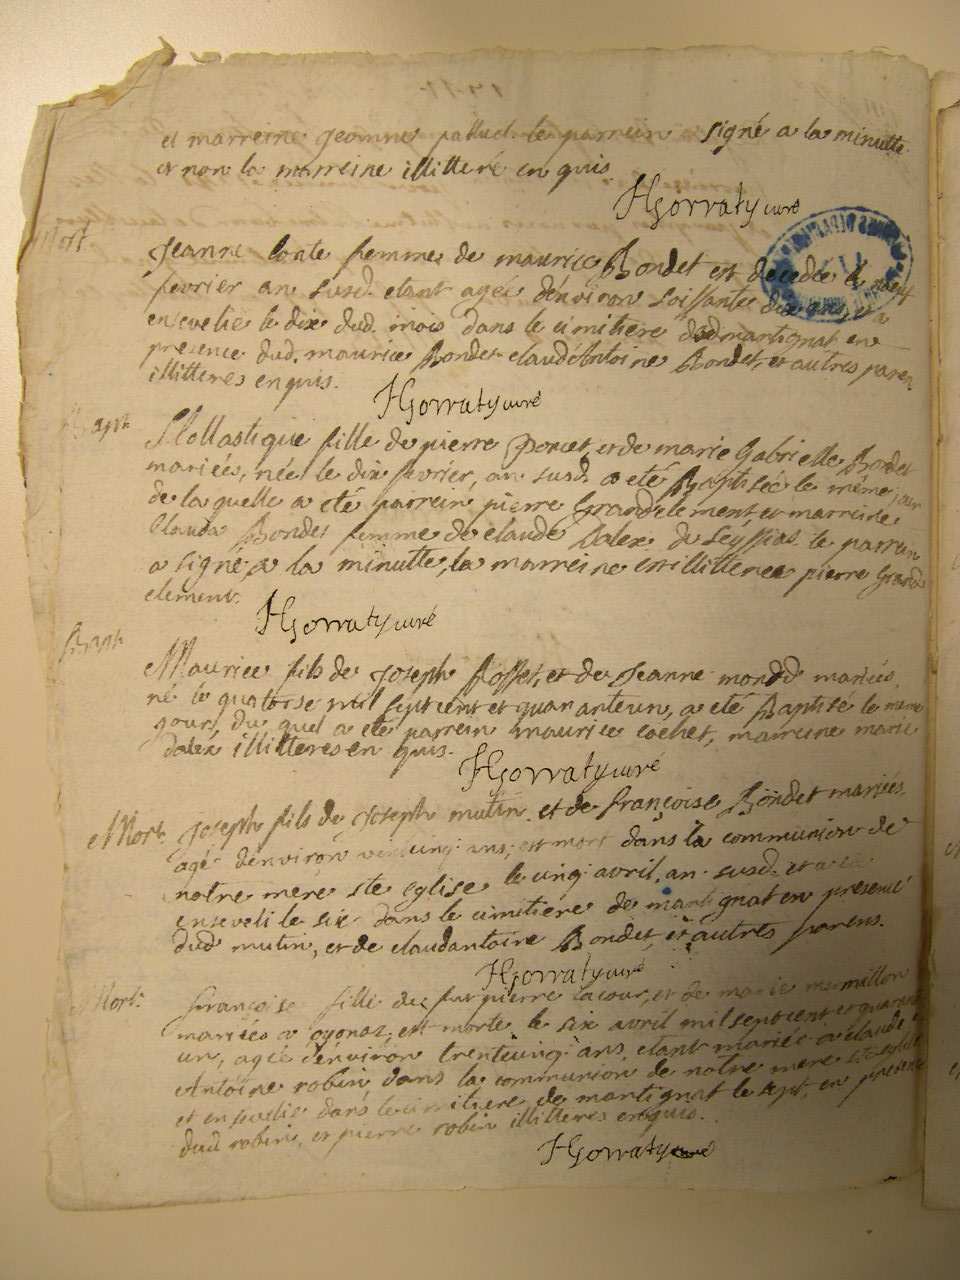 et marreine Jeanne pallud le parrein signé a la minutte
et non la marreine illitteré en quis
HGorraty curé
Mort
Jeanne Conte femme de maurice Bondet est decedée le neuf
fevrier an susd. etant agée d'environ soissante dix ans, et a
ensevelie le dix dud. mois dans le cimitiere dud martignat en
presence dud. maurice Bondet claud'Antoine Bondet, et autres paren
illitteres enquis.
HGorraty curé
Bapt
Scollastique fille de pierre Poncet, et de marie Gabrielle Bondet
mariés, née le dix fevrier, an susd. a eté Baptisée le même jour
de la quelle a eté parrein pierre Grandclement et marreine
Clauda Bondet femme de claude Dalex de Seyssias le parrein
a signé a la minutte, la marreine est illitterée pierre Grand
clement.
HGorraty curé
Bapt
Maurice fils de Joseph Rosset, et de Jeanne mondid mariés,
né le quatorse mil sept cent et quarante un, a eté Baptisé le même
jour, du quel a eté parrein maurice cochet, marreine marie
dalex illitteres en quis.
HGorraty curé
Mort.
Joseph fils de Joseph mutin et de françoise Bondet mariés
agé d'environ vint cinq ans, est mort dans la communion de
notre mere ste eglise le cinq avril, an susd. et a eté
enseveli le six dans le cimitiere de martignat en presence
dud mutin, et de claudantoine Bondet, et autres parens.
HGorraty curé
Mort.
françoise fille de fut pierre lacour, et de marie mermillon
mariés a oyonaz, est morte le six avril mil sept cent et quarante
un, agée d'environ trente cinq ans, etant mariée a claude
Antoine robin dans la communion de notre mere ste eglise
et ensevelie dans le cimitiere de martignat le sept, en presence
dud robin, et pierre robin illitteres enquis.
HGorraty curé